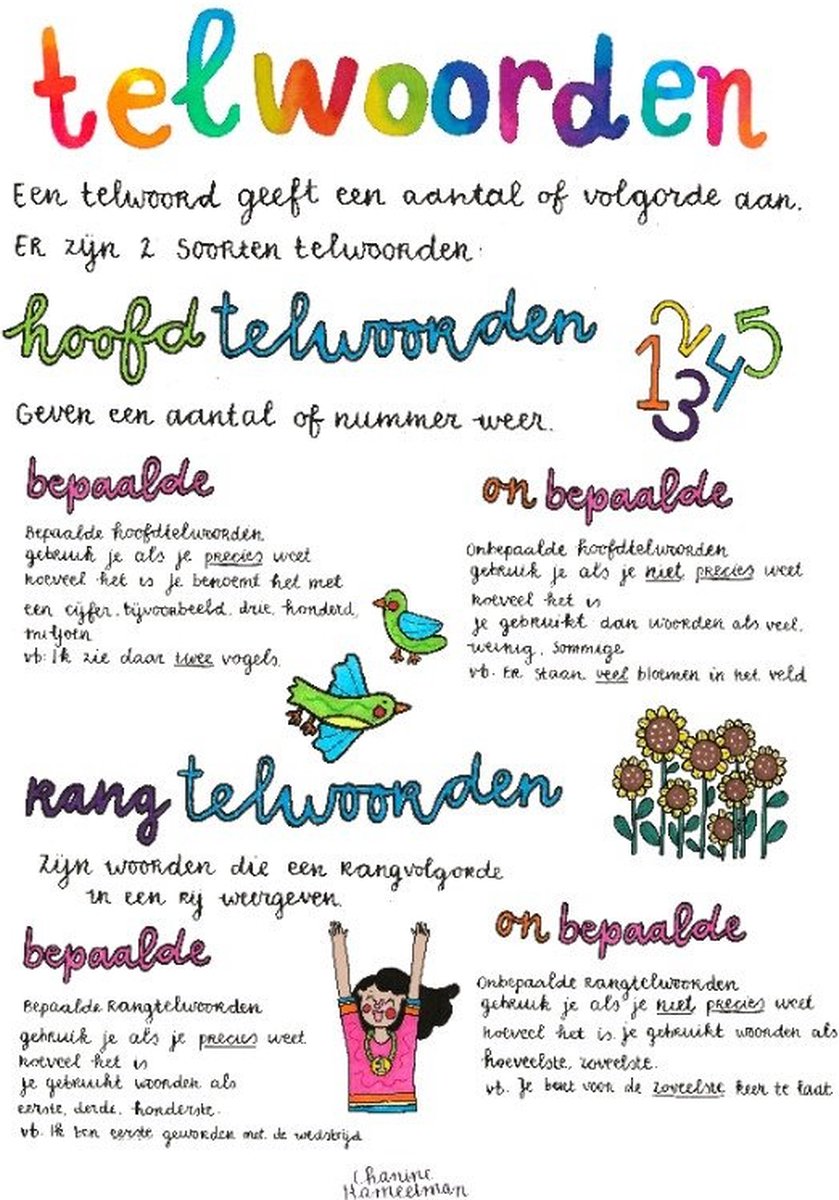 telwoorden
Een telwoord geeft een aantal of volgorde aan.
Er zijn 2 soorten telwoorden.
hoofdtelwoorden
1 2 3 4 5
Geven een aantal of nummer weer.
bepaalde
Bepaalde hoofdtelwoorden
gebruik je als je precies weet
hoeveel het is je benoemt het met
een cijfer. bijvoorbeeld. drie, honderd,
miljoen
vb: Ik zie daar twee vogels.
onbepaalde
Onbepaalde hoofdtelwoorden
gebruik je als je niet precies weet
hoeveel het is
je gebruikt dan woorden als veel,
weinig, sommige
vb. Er staan veel bloemen in het veld
rangtelwoorden
Zijn woorden die een rangvolgorde
in een rij weergeven.
bepaalde
Bepaalde rangtelwoorden
gebruik je als je precies weet
hoeveel het is
je gebruikt woorden als
eerste, derde, honderste.
vb. Ik ben eerste geworden met de wedstrijd
1
onbepaalde
Onbepaalde rangtelwoorden
gebruik je als je niet precies weet
hoeveel het is. je gebruikt woorden als
hoeveelste, zoveelste.
vb. Je bent voor de zoveelste keer te laat.
Chanine
Hameetman